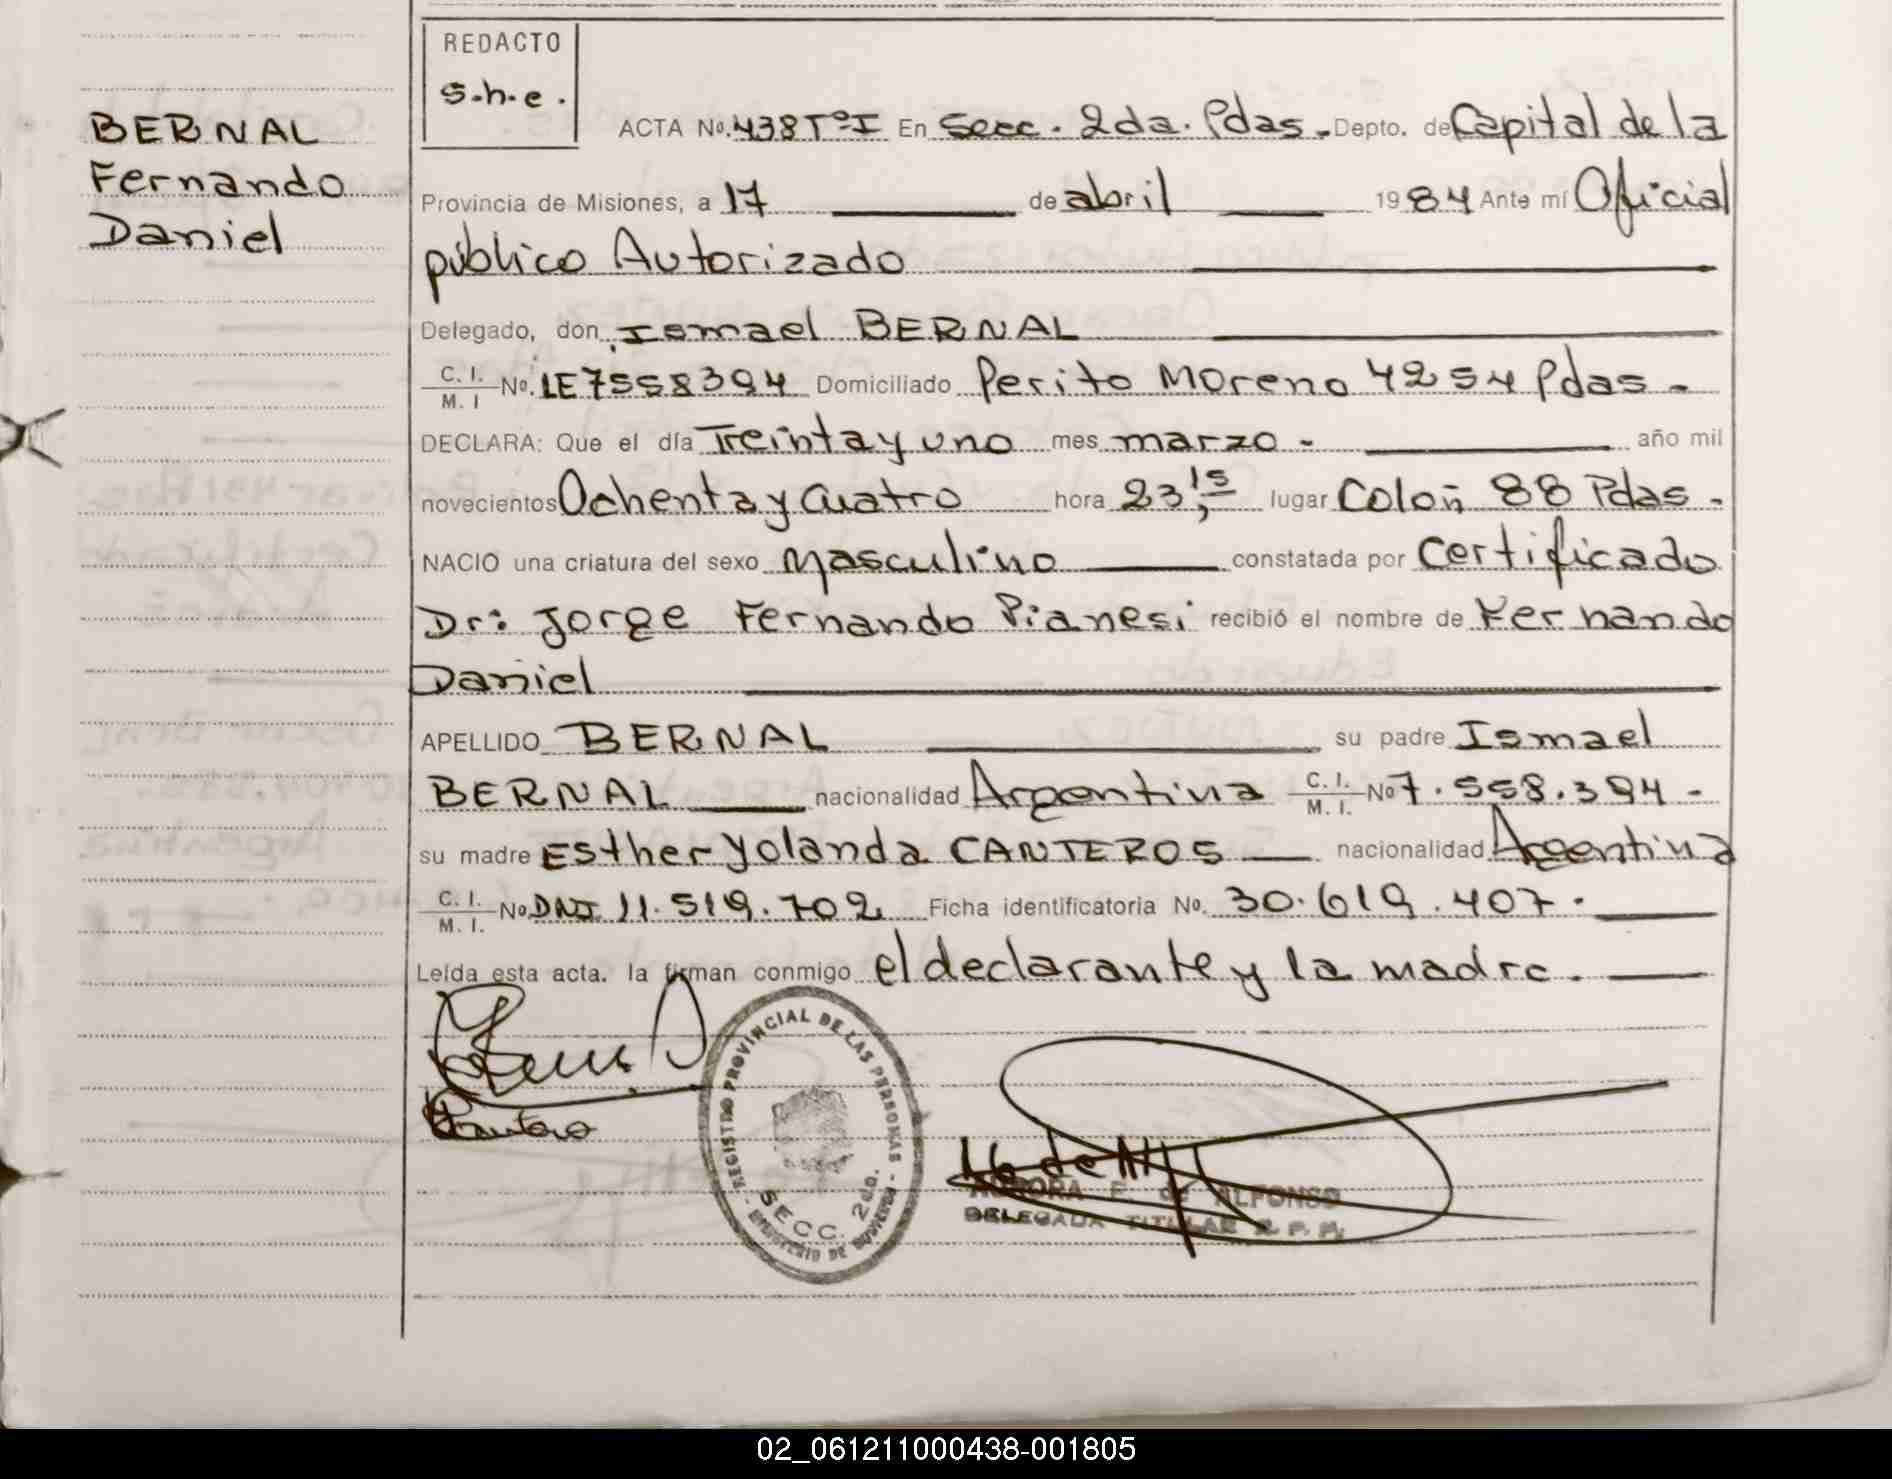 REDACTO
s.h.e.
BERNAL
Fernando
Daniel
ACTA No. 438 Tº I En Secc. 2da. Pdas. Depto. de Capital de la
Provincia de Misiones, a 17 de abril 1984 Ante mí Oficial
público Autorizado
Delegado, don Ismael BERNAL
C. I. / M. I No. LE 7558394 Domiciliado Perito Moreno 4254 Pdas-
DECLARA: Que el día Treinta y uno mes marzo - año mil
novecientos Ochenta y Cuatro hora 23,15 lugar Colón 88 Pdas-
NACIO una criatura del sexo Masculino constatada por Certificado
Dr: Jorge Fernando Pianesi recibió el nombre de Fernando
Daniel
APELLIDO BERNAL su padre Ismael
BERNAL nacionalidad Argentina C. I. / M. I. No 7.558.394-
su madre Esther Yolanda CANTEROS nacionalidad Argentina
C. I. / M. I. No DNI 11.519.702 Ficha identificatoria No. 30.619.407.
Leída esta acta. la firman conmigo el declarante y la madre.
REGISTRO PROVINCIAL DE LAS PERSONAS
SECC. 2da.
AURORA E. de ALFONSO
DELEGADA TITULAR R. P. P.
02_061211000438-001805